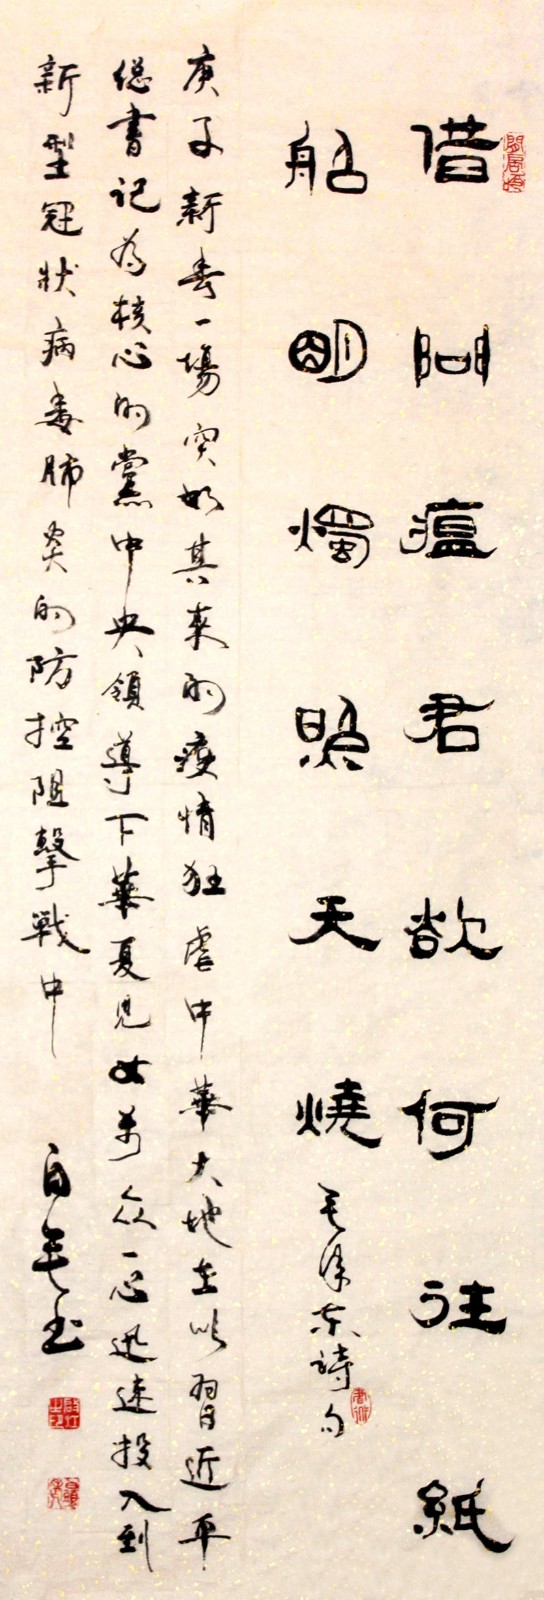 借問瘟君欲何往紙
船明燭照天燒
毛澤東詩句
庚子新春一場突如其来的疫情狂虐中華大地在以習近平
総書記為核心的黨中央領導下華夏児女万众一心迅速投入到
新型冠狀病毒肺炎的防控阻擊戰中